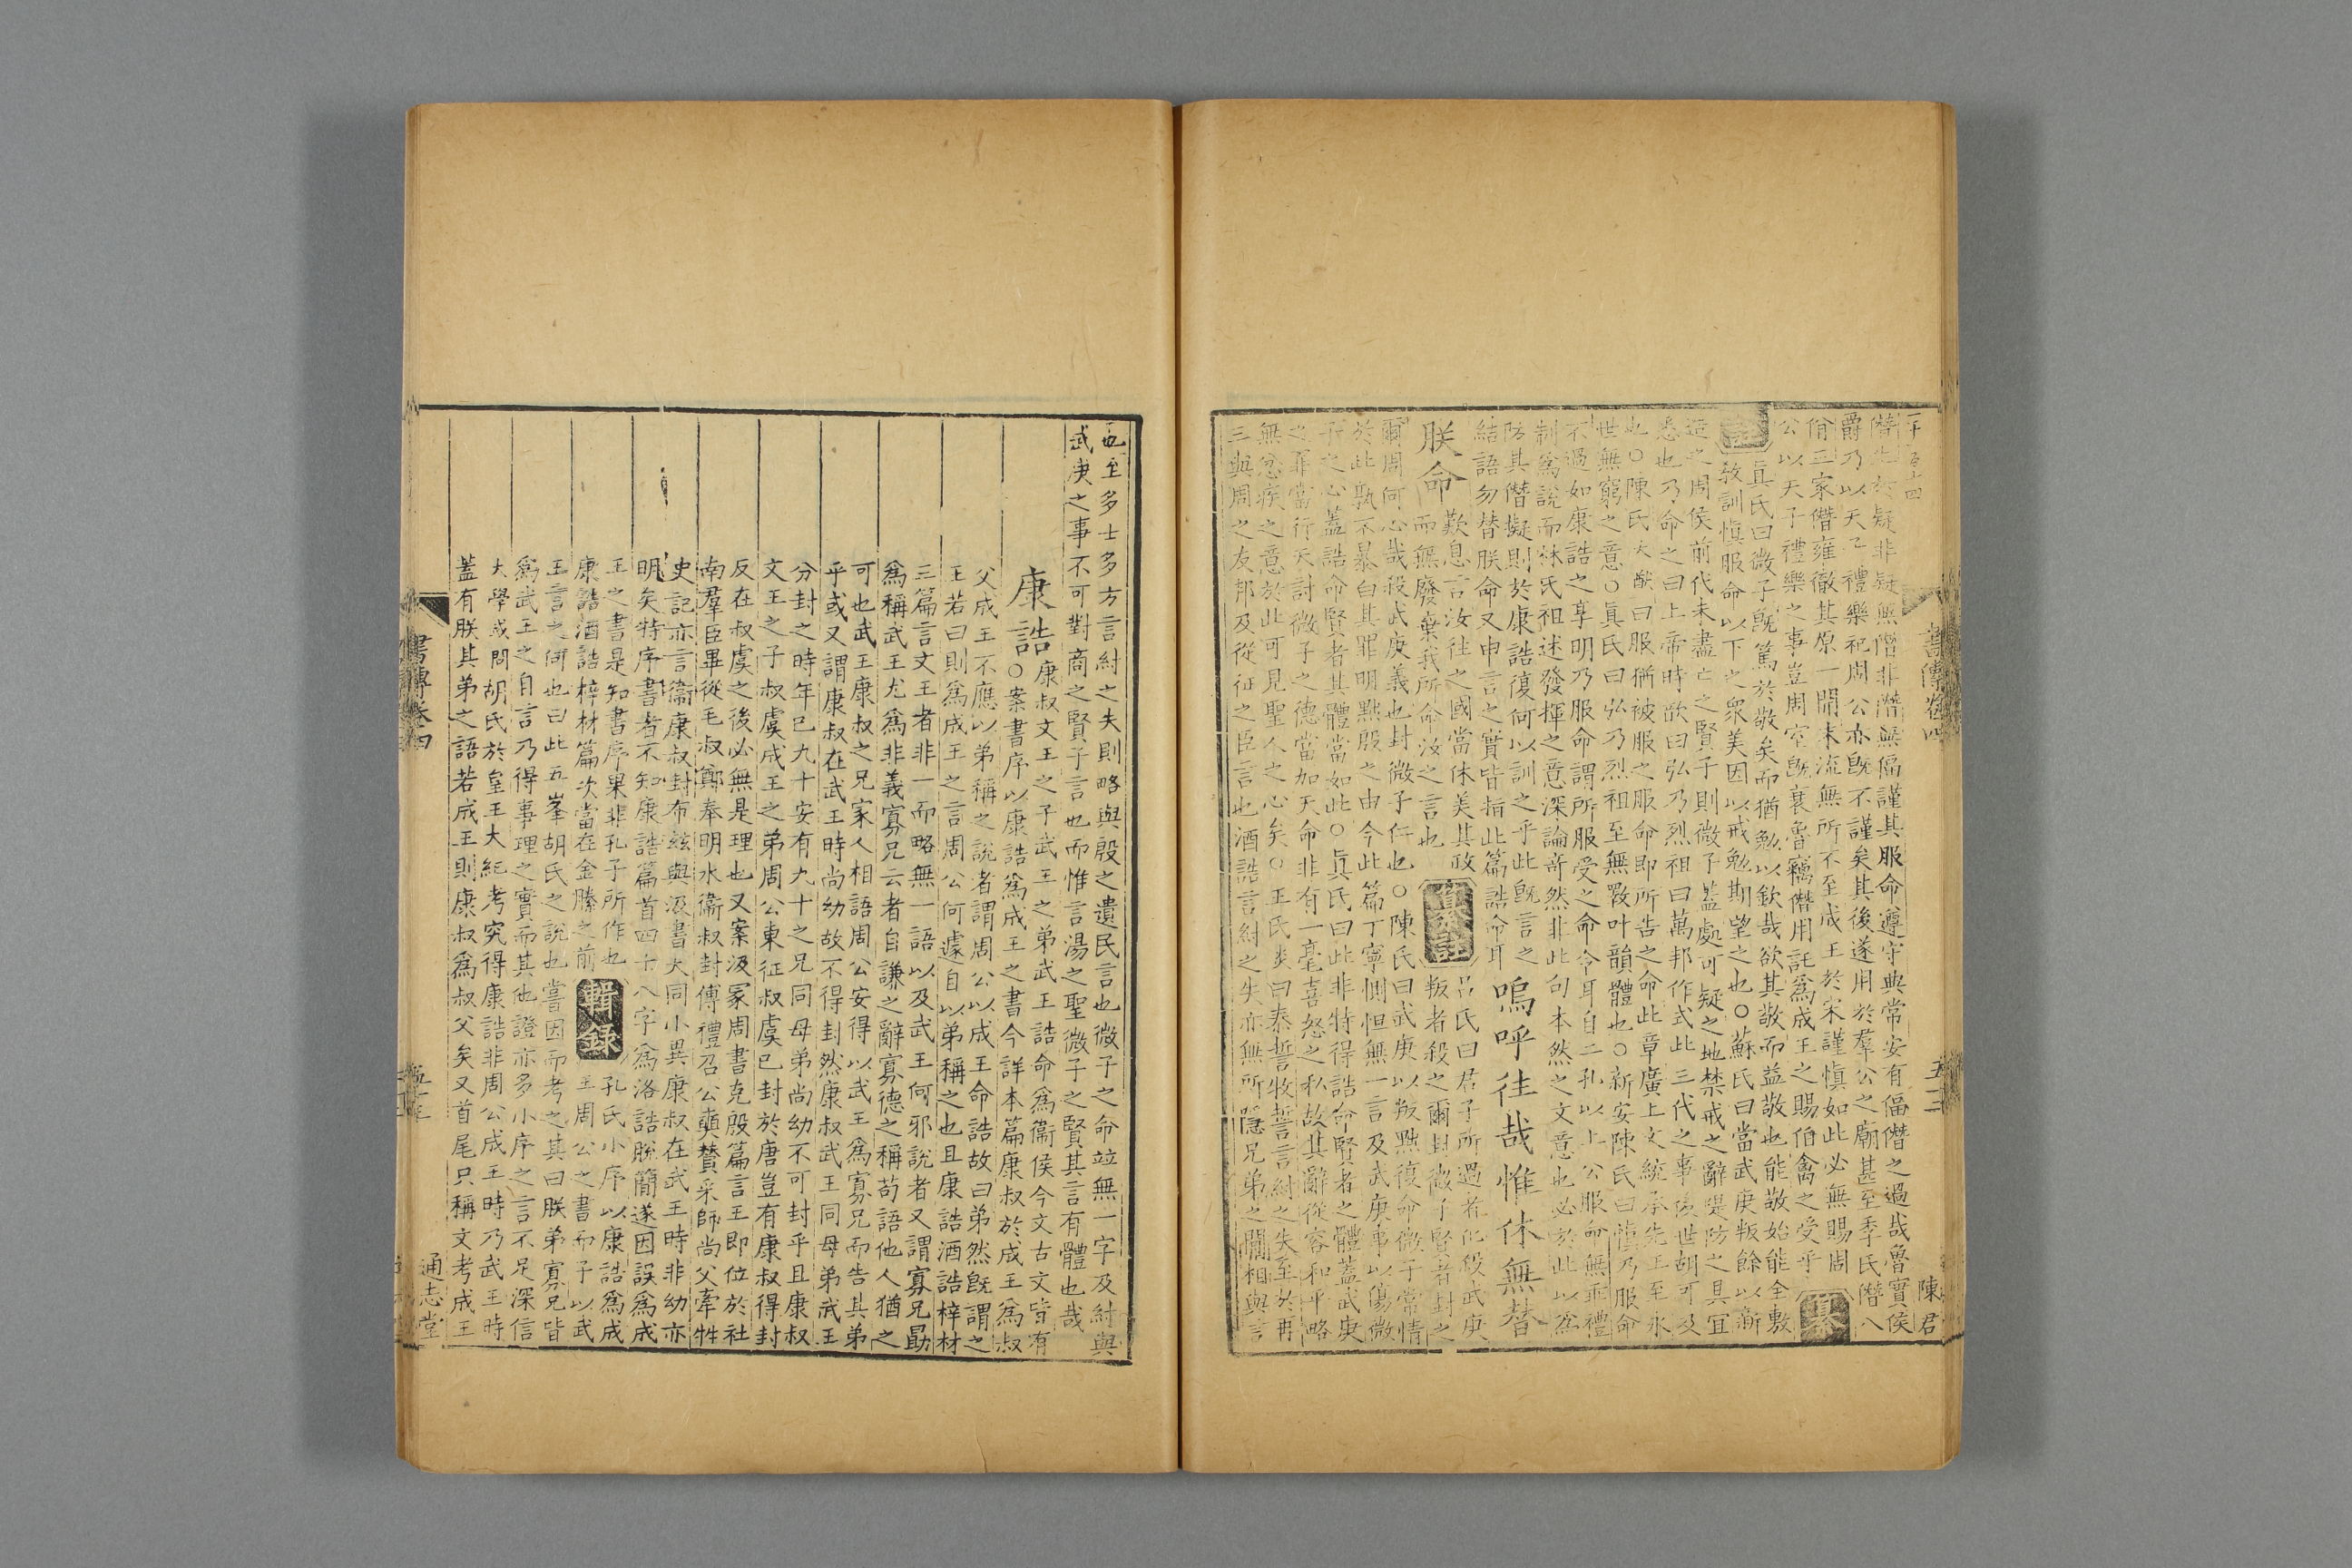 書傳卷四 五十二 陳君
僭生於疑非疑無僭非僭無偪謹其服命遵守典常安有偪僭之過哉魯實侯
爵乃以天子禮樂祀周公亦旣不謹矣其後遂用於羣公之廟甚至季氏僭八
佾三家僭雍徹其原一開末流無所不至成王於宋謹愼如此必無賜周
公以天子禮樂之事豈周室旣衰魯竊僭用託爲成王之賜伯禽之受乎 纂
註 眞氏曰微子旣篤於敬矣而猶勉以欽哉欲其敬而益敬也能敬始能全敷
敎訓愼服命以下之衆美因以戒勉期望之也○蘇氏曰當武庚叛餘以新
造之周侯前代未盡亡之賢子則微子蓋處可疑之地禁戒之辭堤防之具宜
悉也乃命之曰上帝時歆曰弘乃烈祖曰萬邦作式此三代之事後世胡可及
也○陳氏大猷曰服猶被服之服命即所告之命此章廣上文統承先王至永
世無窮之意○眞氏曰弘乃烈祖至無斁叶韻體也○新安陳氏曰愼乃服命
不過如康誥之享明乃服命謂所服受之命令耳自二孔以上公服命無乖禮
制爲說而林氏祖述發揮之意深論奇然非此句本然之文意也必於此以爲
防其僭擬則於康誥復何以訓之乎此旣言之
結語勿替朕命又申言之實皆指此篇誥命耳
嗚呼往哉惟休無替
朕命
歎息言汝往之國當休美其政
而無廢棄我所命汝之言也
纂註
呂氏曰君子所過者化殺武庚
叛者殺之爾封微子賢者封之
爾周何心哉殺武庚義也封微子仁也○陳氏曰武庚以叛黜復命微子常情
於此孰不暴白其罪明黜殷之由今此篇丁寧惻怛無一言及武庚事以傷微
子之心蓋誥命賢者其體當如此○眞氏曰此非特得誥命賢者之體蓋武庚
之罪當行天討微子之德當加天命非有一毫喜怒之私故其辭從容和平略
無忿疾之意於此可見聖人之心矣○王氏炎曰泰誓牧誓言紂之失至於再
三與周之友邦及從征之臣言也酒誥言紂之失亦無所隱兄弟之閒相與言
也至多士多方言紂之失則略與殷之遺民言也微子之命竝無一字及紂與
武庚之事不可對商之賢子言也而惟言湯之聖微子之賢其言有體也哉
康誥
康叔文王之子武王之弟武王誥命爲衞侯今文古文皆有
○案書序以康誥爲成王之書今詳本篇康叔於成王爲叔
父成王不應以弟稱之說者謂周公以成王命誥故曰弟然旣謂之
王若曰則爲成王之言周公何遽自以弟稱之也且康誥酒誥梓材
三篇言文王者非一而略無一語以及武王何邪說者又謂寡兄勗
爲稱武王尤爲非義寡兄云者自謙之辭寡德之稱苟語他人猶之
可也武王康叔之兄家人相語周公安得以武王爲寡兄而告其弟
乎或又謂康叔在武王時尚幼故不得封然康叔武王同母弟武王
分封之時年已九十安有九十之兄同母弟尚幼不可封乎且康叔
文王之子叔虞成王之弟周公東征叔虞已封於唐豈有康叔得封
反在叔虞之後必無是理也又案汲冢周書克殷篇言王即位於社
南羣臣畢從毛叔鄭奉明水衞叔封傅禮召公奭贊采師尚父牽牲
史記亦言衞康叔封布兹與汲書大同小異康叔在武王時非幼亦
明矣特序書者不知康誥篇首四十八字爲洛誥脫簡遂因誤爲成
王之書是知書序果非孔子所作也
康誥酒誥梓材篇次當在金縢之前
輯錄
孔氏小序以康誥爲成
王周公之書而子以武
王言之何也曰此五峯胡氏之說也嘗因而考之其曰朕弟寡兄皆
爲武王之自言乃得事理之實而其他證亦多小序之言不足深信
大學或問胡氏於皇王大紀考究得康誥非周公成王時乃武王時
蓋有朕其弟之語若成王則康叔爲叔父矣又首尾只稱文考成王
書傳卷四 五十三 通志堂